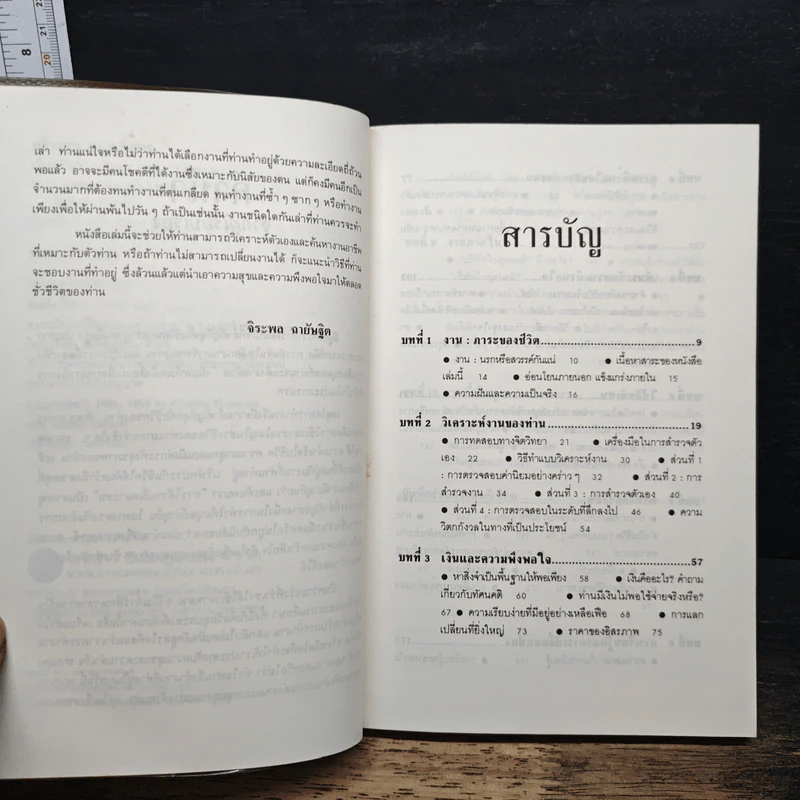 เล่า ท่านแน่ใจหรือไม่ว่าท่านได้เลือกงานที่ท่านทำอยู่ด้วยความละเอียดถี่ถ้วน
พอแล้ว อาจจะมีคนโชคดีที่ได้งานซึ่งเหมาะกับนิสัยของตน แต่ก็คงมีคนอีกเป็น
จำนวนมากที่ต้องทนทำงานที่ตนเกลียด ทนทำงานที่ซ้ำ ๆ ซาก ๆ หรือทำงาน
เพียงเพื่อให้ผ่านพ้นไปวัน ๆ ถ้าเป็นเช่นนั้น งานชนิดใดกันเล่าที่ท่านควรจะทำ
หนังสือเล่มนี้จะช่วยให้ท่านสามารถวิเคราะห์ตัวเองและค้นหางานอาชีพ
ที่เหมาะกับตัวท่าน หรือถ้าท่านไม่สามารถเปลี่ยนงานได้ ก็จะแนะนำวิธีที่ท่าน
จะชอบงานที่ทำอยู่ ซึ่งล้วนแล้วแต่นำเอาความสุขและความพึงพอใจมาให้ตลอด
ชั่วชีวิตของท่าน
จิระพล ฉายัษฐิต
สารบัญ
บทที่ 1 งาน : ภาระของชีวิต 9
● งาน : นรกหรือสวรรค์กันแน่ 10 ● เนื้อหาสาระของหนังสือ
เล่มนี้ 14 ● อ่อนโยนภายนอก แข็งแกร่งภายใน 15
● ความฝันและความเป็นจริง 16
บทที่ 2 วิเคราะห์งานของท่าน 19
● การทดสอบทางจิตวิทยา 21 ● เครื่องมือในการสำรวจตัว
เอง 22 ● วิธีทำแบบวิเคราะห์งาน 30 ● ส่วนที่ 1
: การตรวจสอบค่านิยมอย่างคร่าว ๆ 32 ● ส่วนที่ 2 : การ
สำรวจงาน 34 ● ส่วนที่ 3 : การสำรวจตัวเอง 40
● ส่วนที่ 4 : การตรวจสอบในระดับที่ลึกลงไป 46 ● ความ
วิตกกังวลในทางที่เป็นประโยชน์ 54
บทที่ 3 เงินและความพึงพอใจ 57
● หาสิ่งจำเป็นพื้นฐานให้พอเพียง 58 ● เงินคืออะไร? คำถาม
เกี่ยวกับทัศนคติ 60 ● ท่านมีเงินไม่พอใช้จ่ายจริงหรือ?
67 ● ความเรียบง่ายที่มีอยู่อย่างเหลือเฟือ 68 ● การแลก
เปลี่ยนที่ยิ่งใหญ่ 73 ● ราคาของอิสรภาพ 75
8
22
21
20